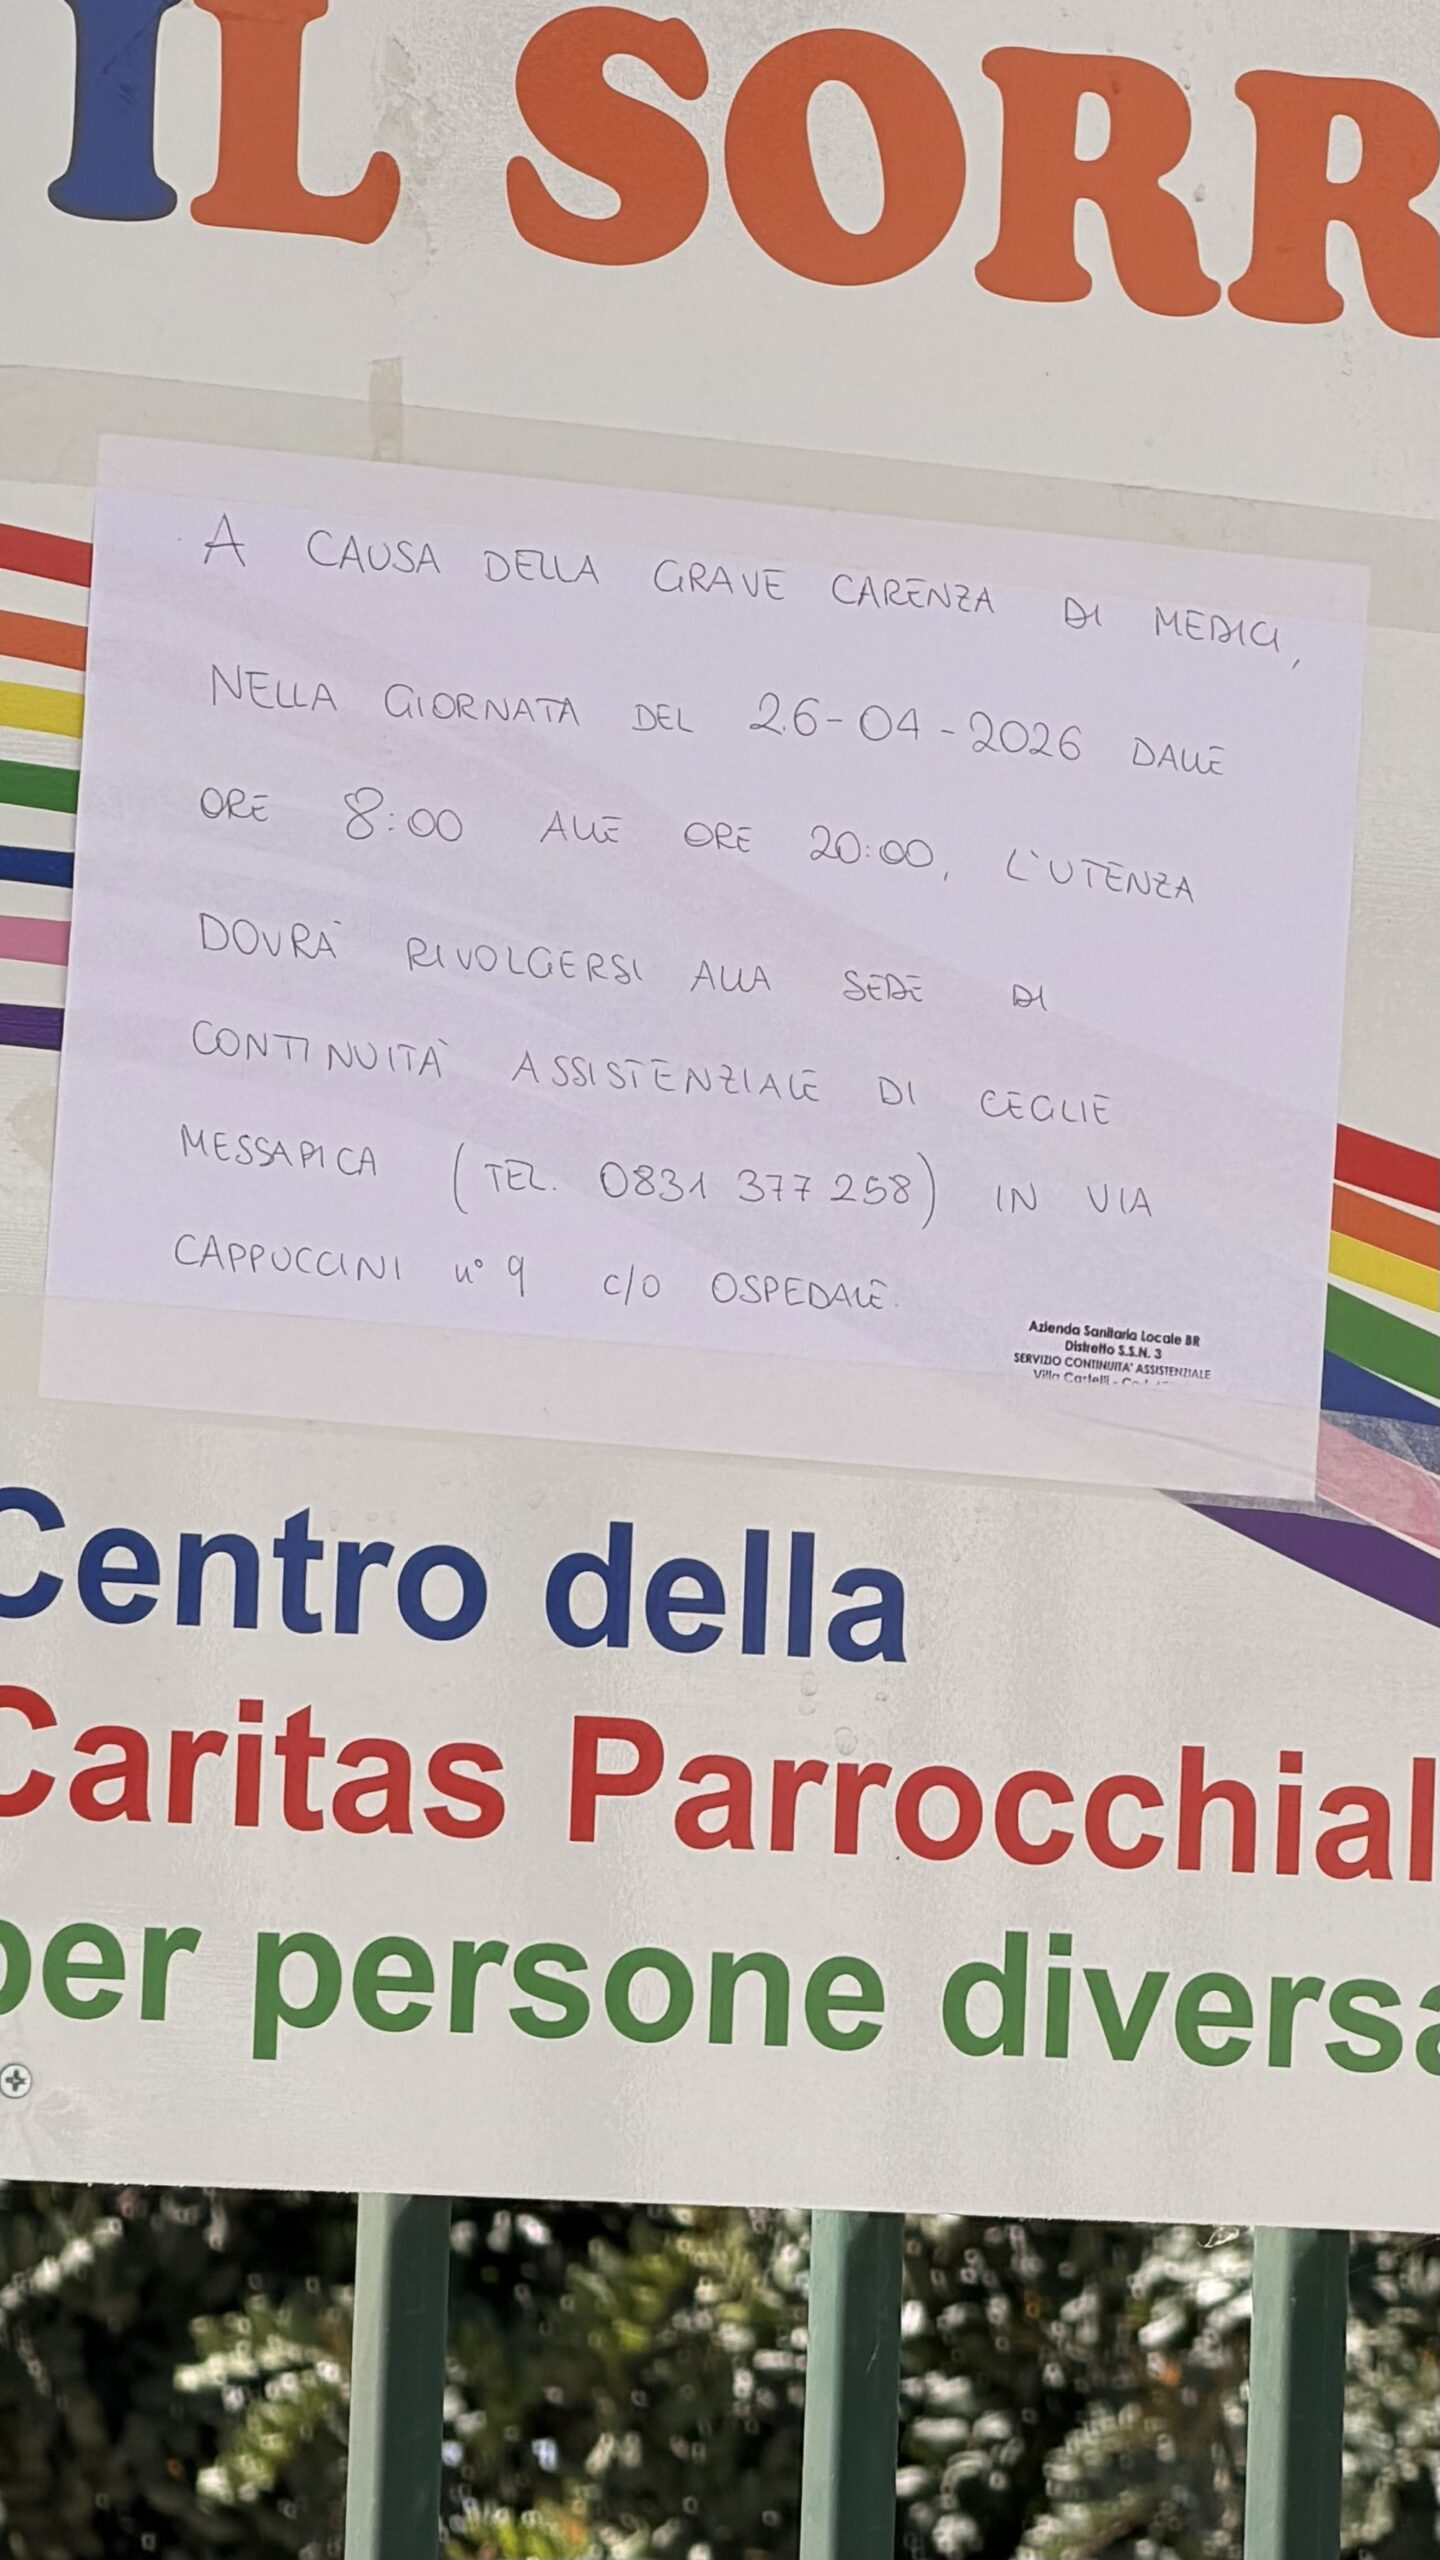 IL SORR
A CAUSA DELLA GRAVE CARENZA DI MEDICI,
NELLA GIORNATA DEL 26-04-2026 DALLE
ORE 8:00 ALLE ORE 20:00, L'UTENZA
DOVRÀ RIVOLGERSI ALLA SEDE DI
CONTINUITÀ ASSISTENZIALE DI CEGLIE
MESSAPICA (TEL. 0831 377 258) IN VIA
CAPPUCCINI n° 9 c/o OSPEDALE.
Azienda Sanitaria Locale BR
Distretto S.S.N. 3
SERVIZIO CONTINUITA' ASSISTENZIALE
Villa Castelli -
Centro della
Caritas Parrocchial
per persone diversa